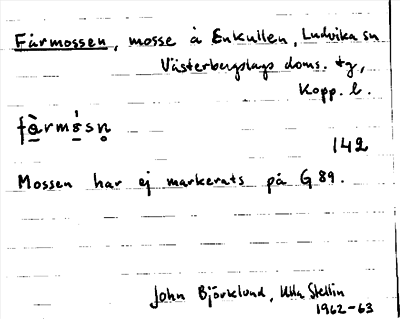 Fårmossen, mosse å Enkullen, Ludvika sn
Västerbergslags doms. tg,
Kopp. l.
fȧ̀rmȯ́sn̥
142
Mossen har ej markerats på G 89.
John Björklund, Ulla Stellin
1962-63